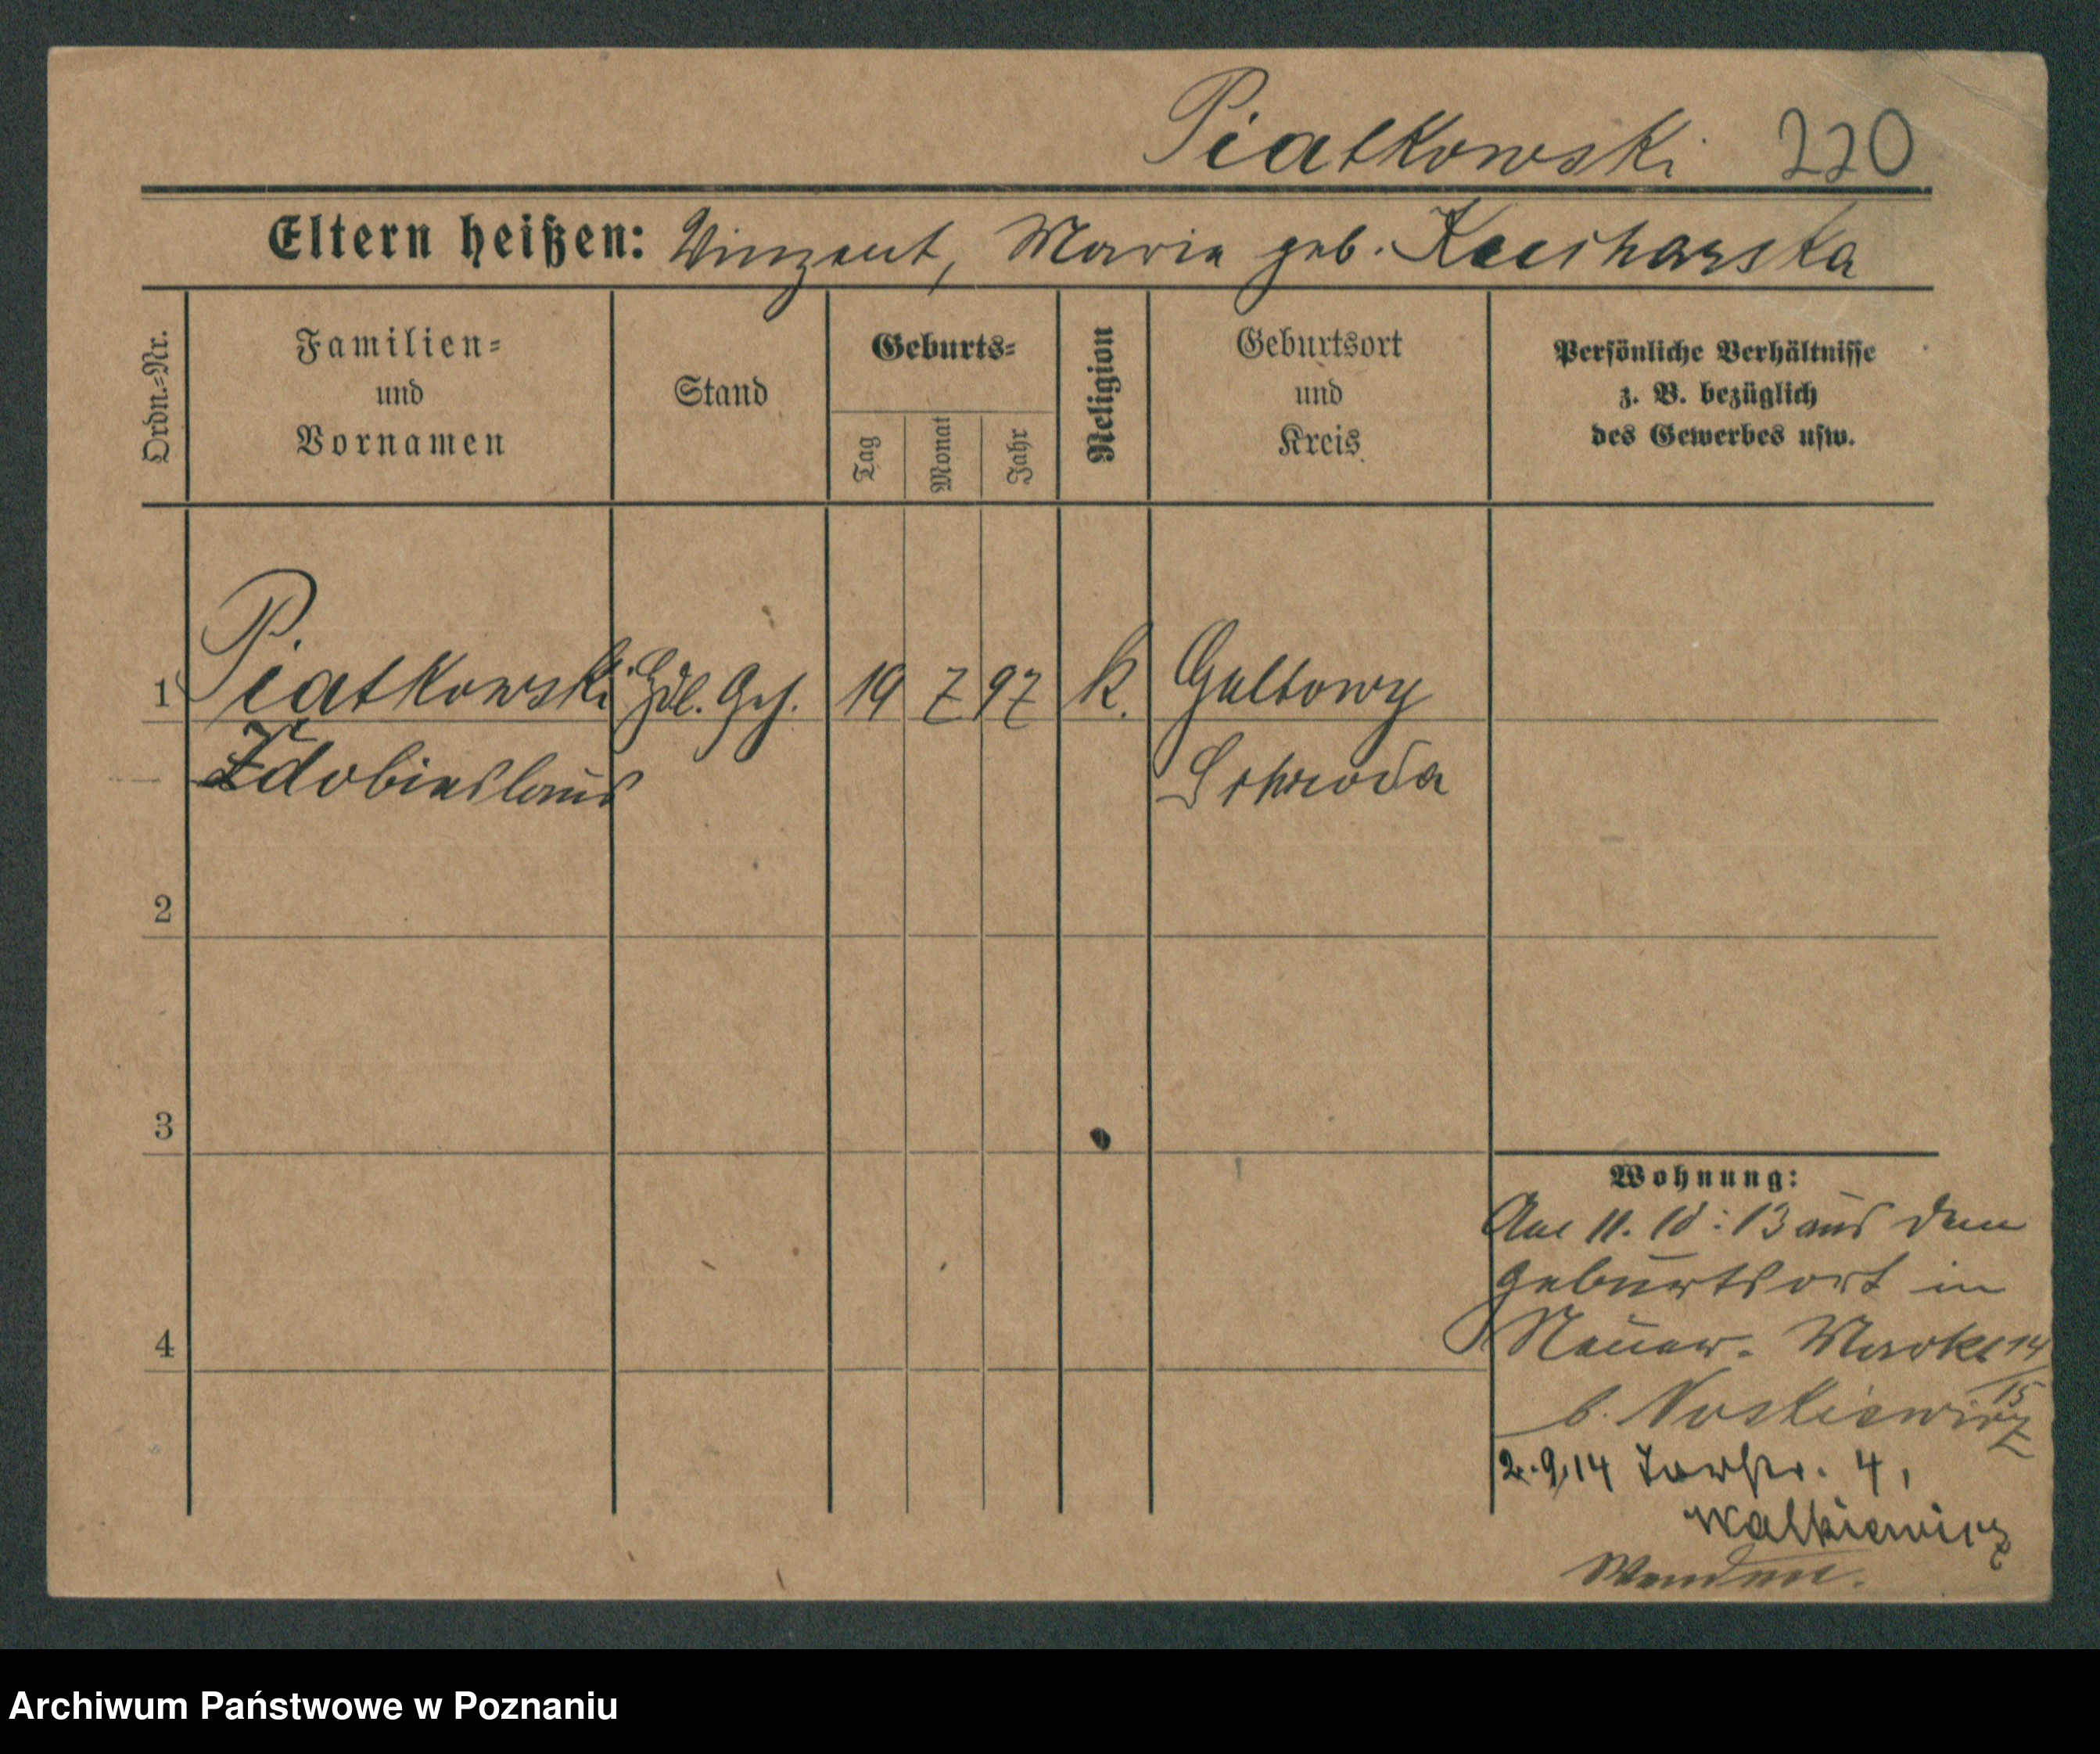 Piatkowski 220
Eltern heißen: Vinzent, Maria geb. Kucharska
Ordn.-Nr.
Familien-
und
Vornamen
Stand
Geburts-
Tag
Monat
Jahr
Religion
Geburtsort
und
Kreis
Persönliche Verhältnisse
z. B. bezüglich
des Gewerbes usw.
1 Piatkowski Hdl. Geh. 19 7 97 k. Gultowy
Zdobieslaus Schroda
2
3
4
Wohnung:
Am 11. 10. 13 aus dem
Geburtsort in
Markt 14/15
b. Noskiewicz
2.9.14 Torstr. 4,
Walkiewicz
Wenden.
Archiwum Państwowe w Poznaniu